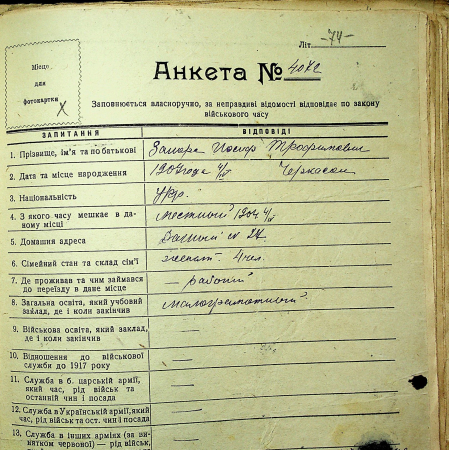 Літ. -74-
Місце
для
фотокартки
Анкета № 4072
Заповнюється власноручно, за неправдиві відомості відповідає по закону
військового часу
ЗАПИТАННЯ ВІДПОВІДІ
1. Прізвище, ім'я та по батькові Йосиф Трофимович
2. Дата та місце народження 1904 года Черкассы
3. Національність Укр.
4. З якого часу мешкає в даному місці местный 1904
5. Домашня адреса № 27
6. Сімейний стан та склад сім'ї женат 4 чел.
7. Де проживав та чим займався
до переїзду в дане місце — рабочий
8. Загальна освіта, який учбовий
заклад, де і коли закінчив малограмотный
9. Військова освіта, який заклад,
де і коли закінчив —
10. Відношення до військової
служби до 1917 року —
11. Служба в б. царській армії,
який час, рід військ та
останній чин і посада —
12. Служба в Українській армії, який
час, рід військ та ост. чин і посада —
13. Служба в інших арміях (за ви-
нятком червоної) — рід військ,